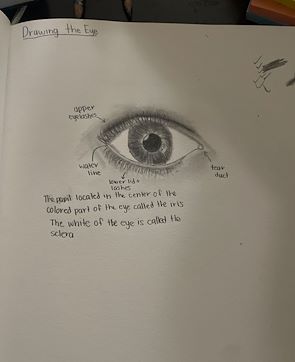 Drawing the Eye
upper
eyelashes
water
line
lower lid +
lashes
tear
duct
The pupil located in the center of the
colored part of the eye called the iris
The white of the eye is called the
sclera